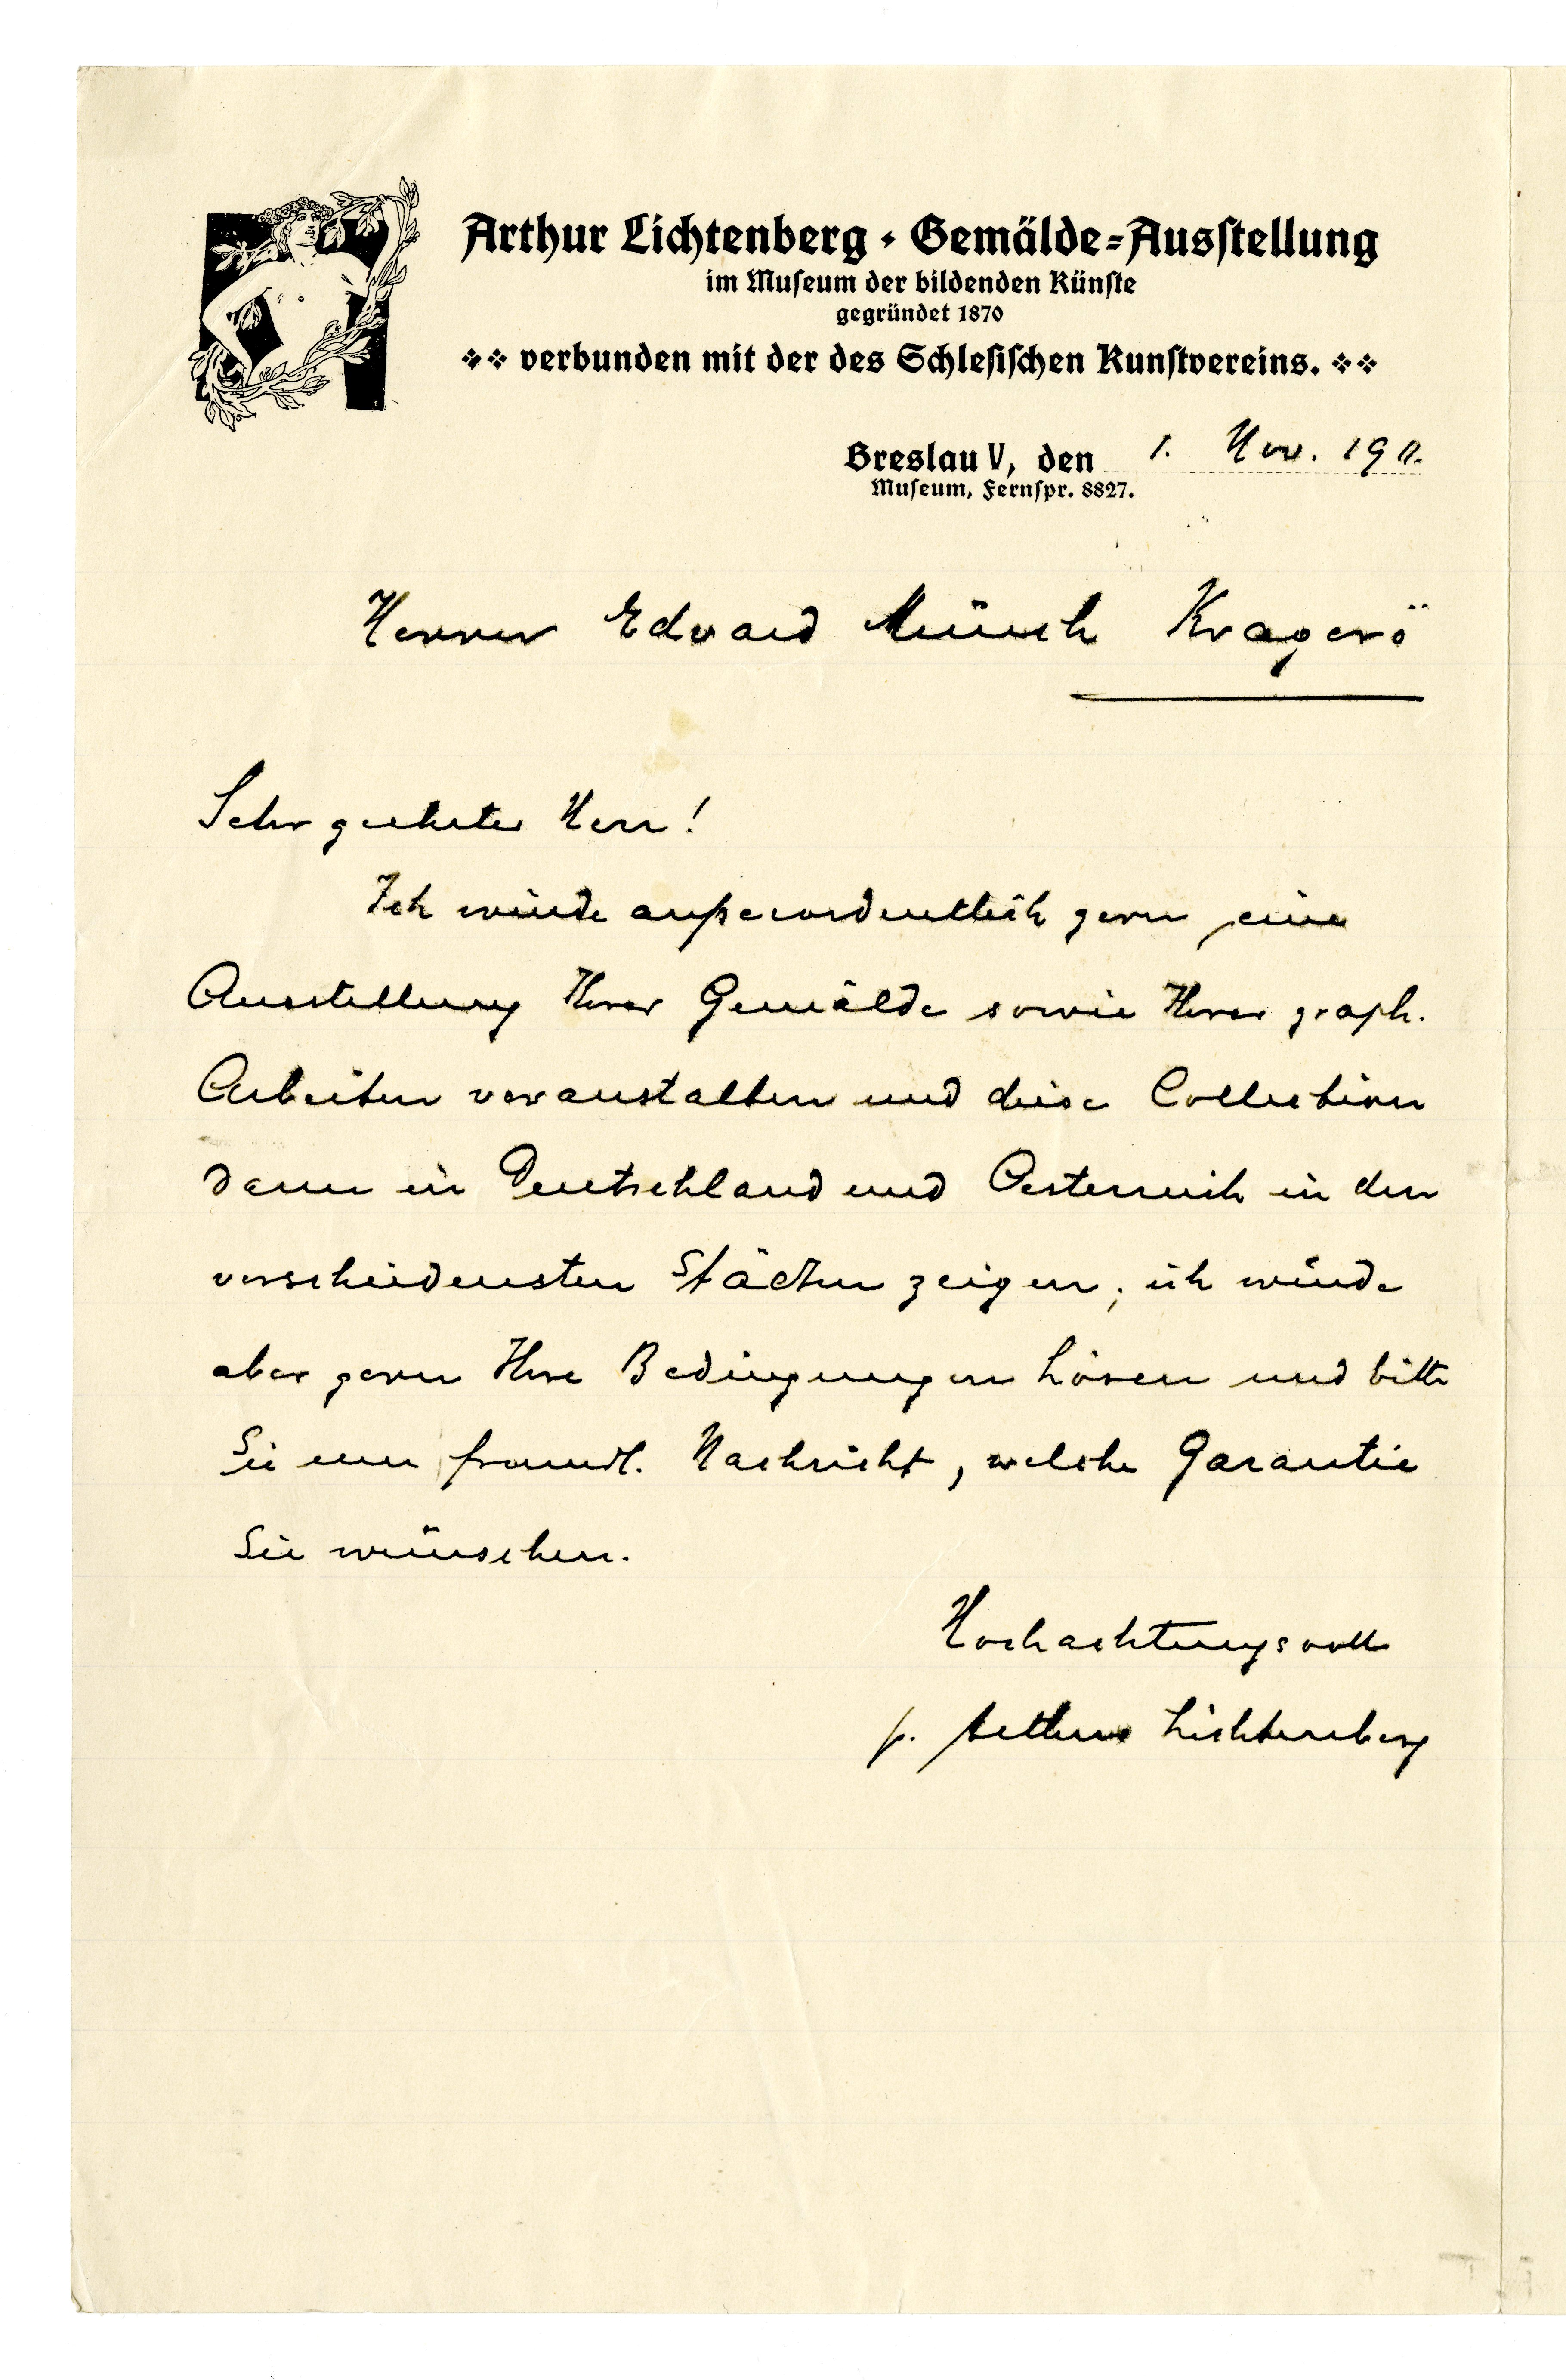 Arthur Lichtenberg · Gemälde-Ausstellung
im Museum der bildenden Künste
gegründet 1870
verbunden mit der des Schlesischen Kunstvereins.
Breslau V, den 1. Nov. 1911.
Museum, Fernspr. 8827.
Herrn Edvard Münch Kragerö
Sehr geehrter Herr!
Ich würde außerordentlich gern eine
Ausstellung Ihrer Gemälde sowie Ihrer graph.
Arbeiten veranstalten und diese Collection
dann in Deutschland und Oesterreich in den
verschiedensten Städten zeigen; ich würde
aber gern Ihre Bedingungen hören und bitte
Sie um freundl. Nachricht, welche Garantie
Sie wünschen.
Hochachtungsvoll
p. Arthur Lichtenberg